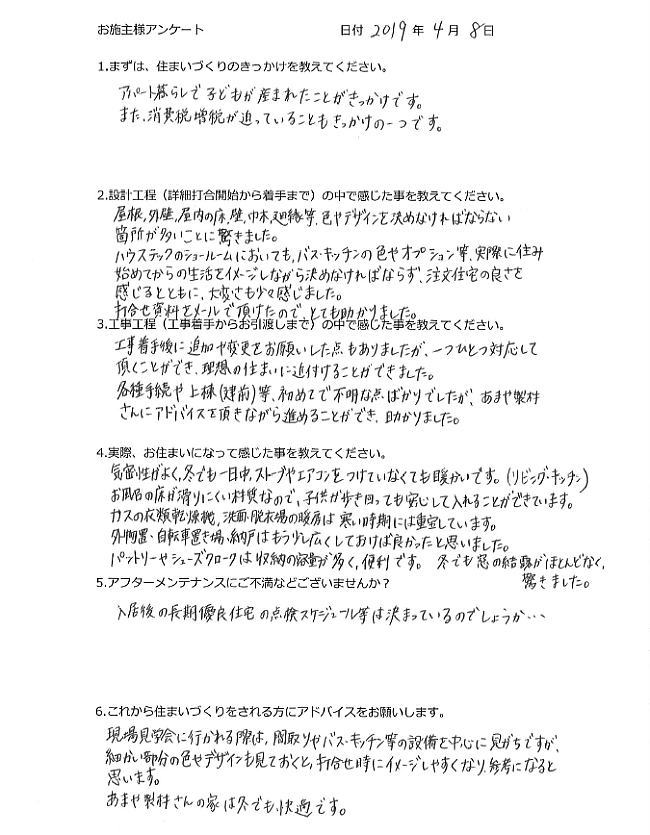 お施主様アンケート 日付 2019 年 4 月 8 日
1.まずは、住まいづくりのきっかけを教えてください。
アパート暮らしで子どもが産まれたことがきっかけです。
また、消費税増税が迫っていることもきっかけの一つです。
2.設計工程（詳細打合開始から着手まで）の中で感じた事を教えてください。
屋根,外壁,屋内の床,壁,巾木,廻縁等,色やデザインを決めなければならない
箇所が多いことに驚きました。
ハウステックのショールームにおいても,バス・キッチンの色やオプション等,実際に住み
始めてからの生活をイメージしながら決めなければならず、注文住宅の良さを
感じるとともに、大変さも少々感じました。
打合せ資料をメールで頂けたので、とても助かりました。
3.工事工程（工事着手からお引渡しまで）の中で感じた事を教えてください。
工事着手後に追加や変更をお願いした点もありましたが、一つひとつ対応して
頂くことができ、理想の住まいに近付けることができました。
各種手続や上棟(建前)等、初めてで不明な点ばかりでしたが、あまや製材
さんにアドバイスを頂きながら進めることができ、助かりました。
4.実際、お住まいになって感じた事を教えてください。
気密性がよく,冬でも一日中,ストーブやエアコンをつけていなくても暖かいです。(リビング・キッチン)
お風呂の床が滑りにくい材質なので、子供が歩き回っても安心して入れることができています。
ガスの衣類乾燥機,洗面・脱衣場の暖房は寒い時期には重宝しています。
外物置・自転車置き場,納戸はもう少し広くしておけば良かったと思いました。
パントリーやシューズクロークは収納の容量が多く,便利です。 冬でも窓の結露がほとんどなく、
驚きました。
5.アフターメンテナンスにご不満などございませんか？
入居後の長期優良住宅の点検スケジュール等は決まっているのでしょうか…
6.これから住まいづくりをされる方にアドバイスをお願いします。
現場見学会に行かれる際は、間取りやバス・キッチン等の設備を中心に見がちですが、
細かい部分の色やデザインも見ておくと,打合せ時にイメージしやすくなり,参考になると
思います。
あまや製材さんの家は冬でも、快適です。